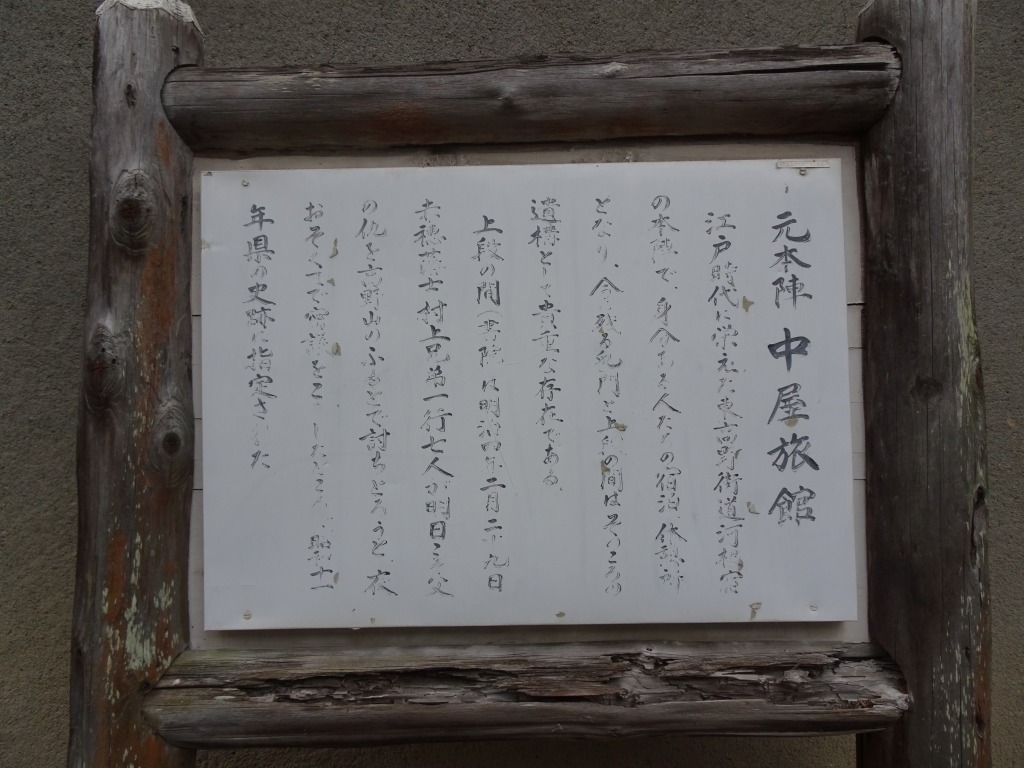 元本陣 中屋旅館
江戸時代に栄えた東高野街道河根宿
の本陣で、身分ある人たちの宿泊 休憩所
となり、今残る表門と上段の間はそのころの
遺構として貴重な存在である。
上段の間(書院)は明治四年二月二十九日
赤穂藩士 村上兄弟一行七人が明日こそ父
の仇を高野山のふもとで討ちとろうと、夜
おそくまで密議をこらしたところ、昭和十一
年県の史跡に指定された